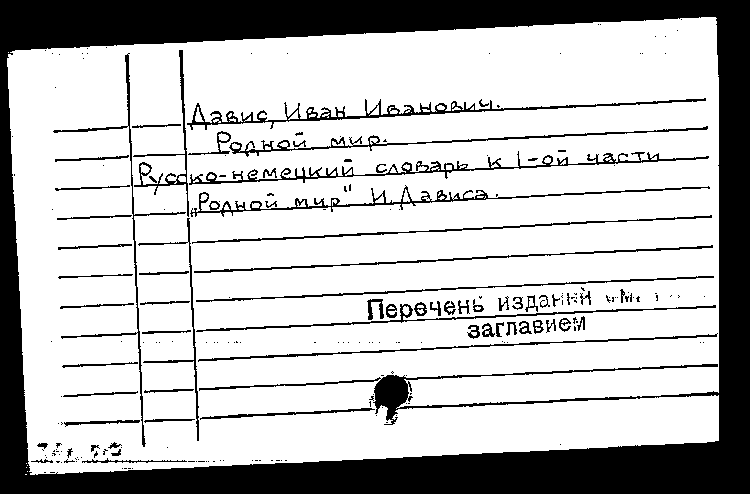 Давис, Иван Иванович.
Родной мир.
Русско-немецкий словарь к I-ой части
„Родной мир" И. Дависа.
Перечень изданий
заглавием